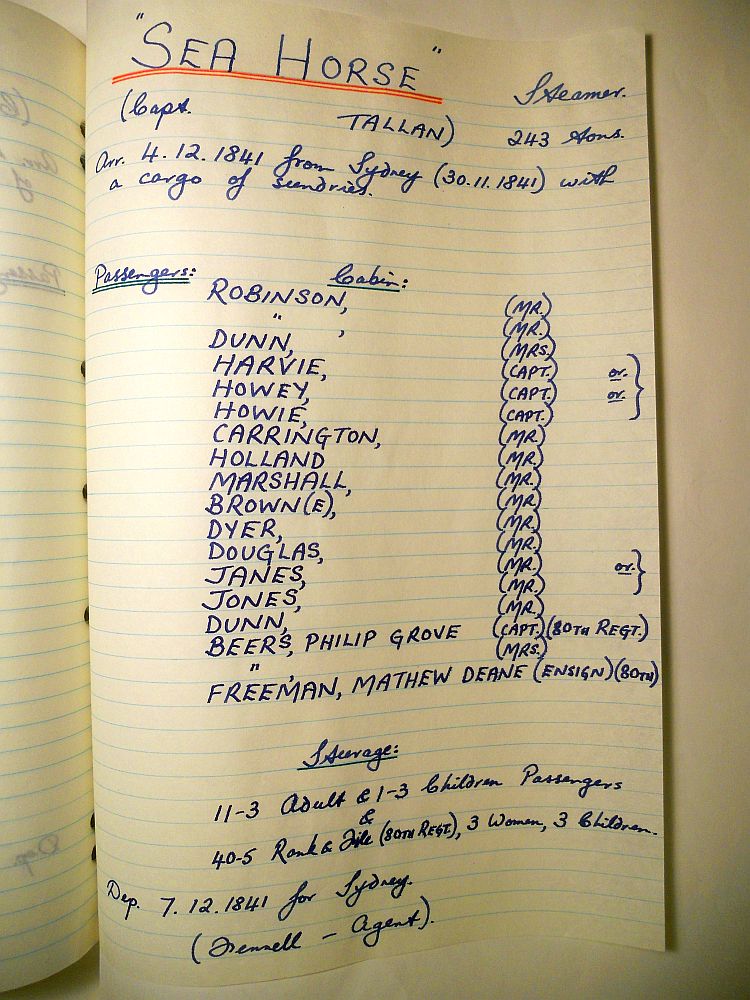 "SEA HORSE"
Steamer.
(Capt. TALLAN) 243 tons.
Arr. 4.12.1841 from Sydney (30.11.1841) with
a cargo of sundries.
Passengers: Cabin:
ROBINSON, (MR.)
" , (MR.)
DUNN, (MRS.)
HARVIE, (CAPT.) or.
HOWEY, (CAPT.) or.
HOWIE, (CAPT.)
CARRINGTON, (MR.)
HOLLAND (MR.)
MARSHALL, (MR.)
BROWN(E), (MR.)
DYER, (MR.)
DOUGLAS, (MR.)
JANES, (MR.) or.
JONES, (MR.)
DUNN, (MR.)
BEERS, PHILIP GROVE (CAPT.) (80TH REGT.)
" , (MRS.)
FREEMAN, MATHEW DEANE (ENSIGN) (80TH)
Steerage:
11-3 Adult & 1-3 Children Passengers
&
40-5 Rank & File (80TH REGT.), 3 Women, 3 Children.
Dep. 7.12.1841 for Sydney.
(Fennell - Agent).